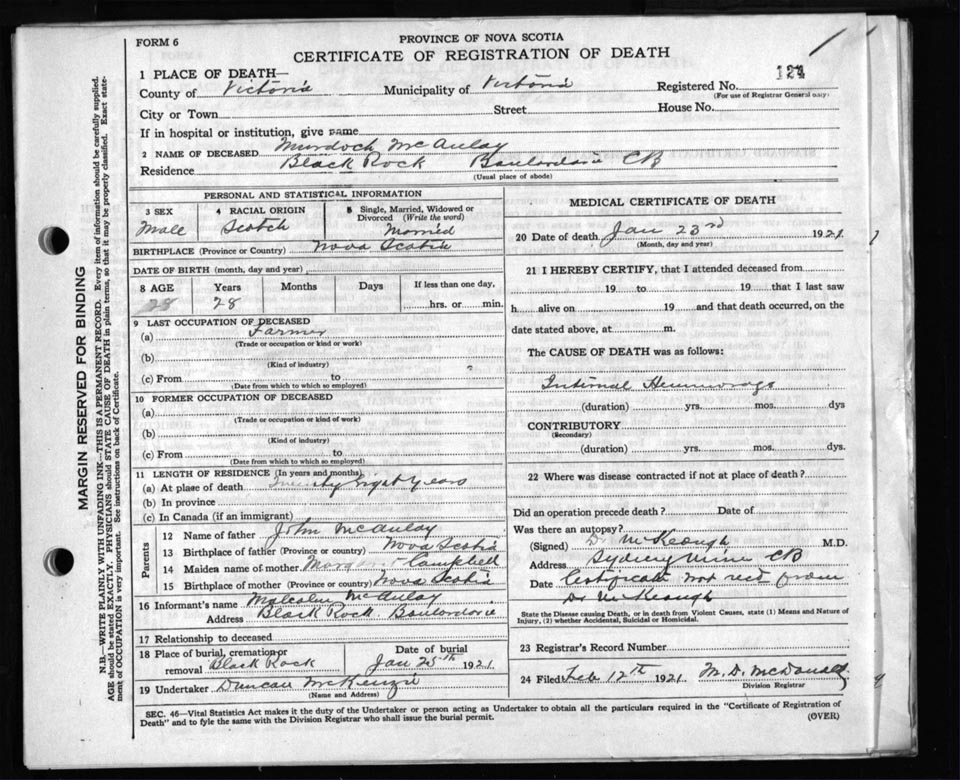 FORM 6
PROVINCE OF NOVA SCOTIA
CERTIFICATE OF REGISTRATION OF DEATH
1 PLACE OF DEATH—
County of Victoria Municipality of Victoria Registered No. 124
(For use of Registrar General only)
City or Town Street House No.
If in hospital or institution, give name
2 NAME OF DECEASED Murdoch McAulay
Residence Black Rock Boulardarie CB
(Usual place of abode)
PERSONAL AND STATISTICAL INFORMATION
3 SEX 4 RACIAL ORIGIN 5 Single, Married, Widowed or Divorced (Write the word)
Male Scotch Married
BIRTHPLACE (Province or Country) Nova Scotia
DATE OF BIRTH (month, day and year)
8 AGE Years Months Days If less than one day,
28 28 hrs. or min.
9 LAST OCCUPATION OF DECEASED
(a) Farmer
(Trade or occupation or kind or work)
(b)
(Kind of industry)
(c) From to
(Date from which to which so employed)
10 FORMER OCCUPATION OF DECEASED
(a)
(Trade or occupation or kind of work)
(b)
(Kind of industry)
(c) From to
(Date from which to which so employed)
11 LENGTH OF RESIDENCE (In years and months)
(a) At place of death Twenty eight years
(b) In province
(c) In Canada (if an immigrant)
Parents
12 Name of father John McAulay
13 Birthplace of father (Province or country) Nova Scotia
14 Maiden name of mother Campbell
15 Birthplace of mother (Province or country) Nova Scotia
16 Informant's name Malcolm McAulay
Address Black Rock Boulardarie
17 Relationship to deceased
18 Place of burial, cremation or removal Black Rock Date of burial Jan 25th 1921
19 Undertaker Duncan McKenzie
(Name and Address)
MEDICAL CERTIFICATE OF DEATH
20 Date of death Jan 23rd 1921
(Month, day and year)
21 I HEREBY CERTIFY, that I attended deceased from
19 to 19 that I last saw
h alive on 19 and that death occurred, on the
date stated above, at m.
The CAUSE OF DEATH was as follows:
Internal Hemmorage
(duration) yrs. mos. dys
CONTRIBUTORY
(Secondary)
(duration) yrs. mos. dys.
22 Where was disease contracted if not at place of death?
Did an operation precede death? Date of
Was there an autopsy?
(Signed) Dr McKeough M.D.
Address Sydney Mines CB
Date Certificate not recd from
Dr McKeough
State the Disease causing Death, or in death from Violent Causes, state (1) Means and Nature of
Injury, (2) whether Accidental, Suicidal or Homicidal.
23 Registrar's Record Number
24 Filed Feb 12th 1921 M. D. McDonald
Division Registrar
SEC. 46—Vital Statistics Act makes it the duty of the Undertaker or person acting as Undertaker to obtain all the particulars required in the "Certificate of Registration of
Death" and to fyle the same with the Division Registrar who shall issue the burial permit.
(OVER)
MARGIN RESERVED FOR BINDING
N.B.—WRITE PLAINLY WITH UNFADING INK—THIS IS A PERMANENT RECORD. Every item of information should be carefully supplied.
AGE should be stated EXACTLY. PHYSICIANS should STATE CAUSE OF DEATH in plain terms, so that it may be properly classified. Exact state-
ment of OCCUPATION is very important. See instructions on back of Certificate.